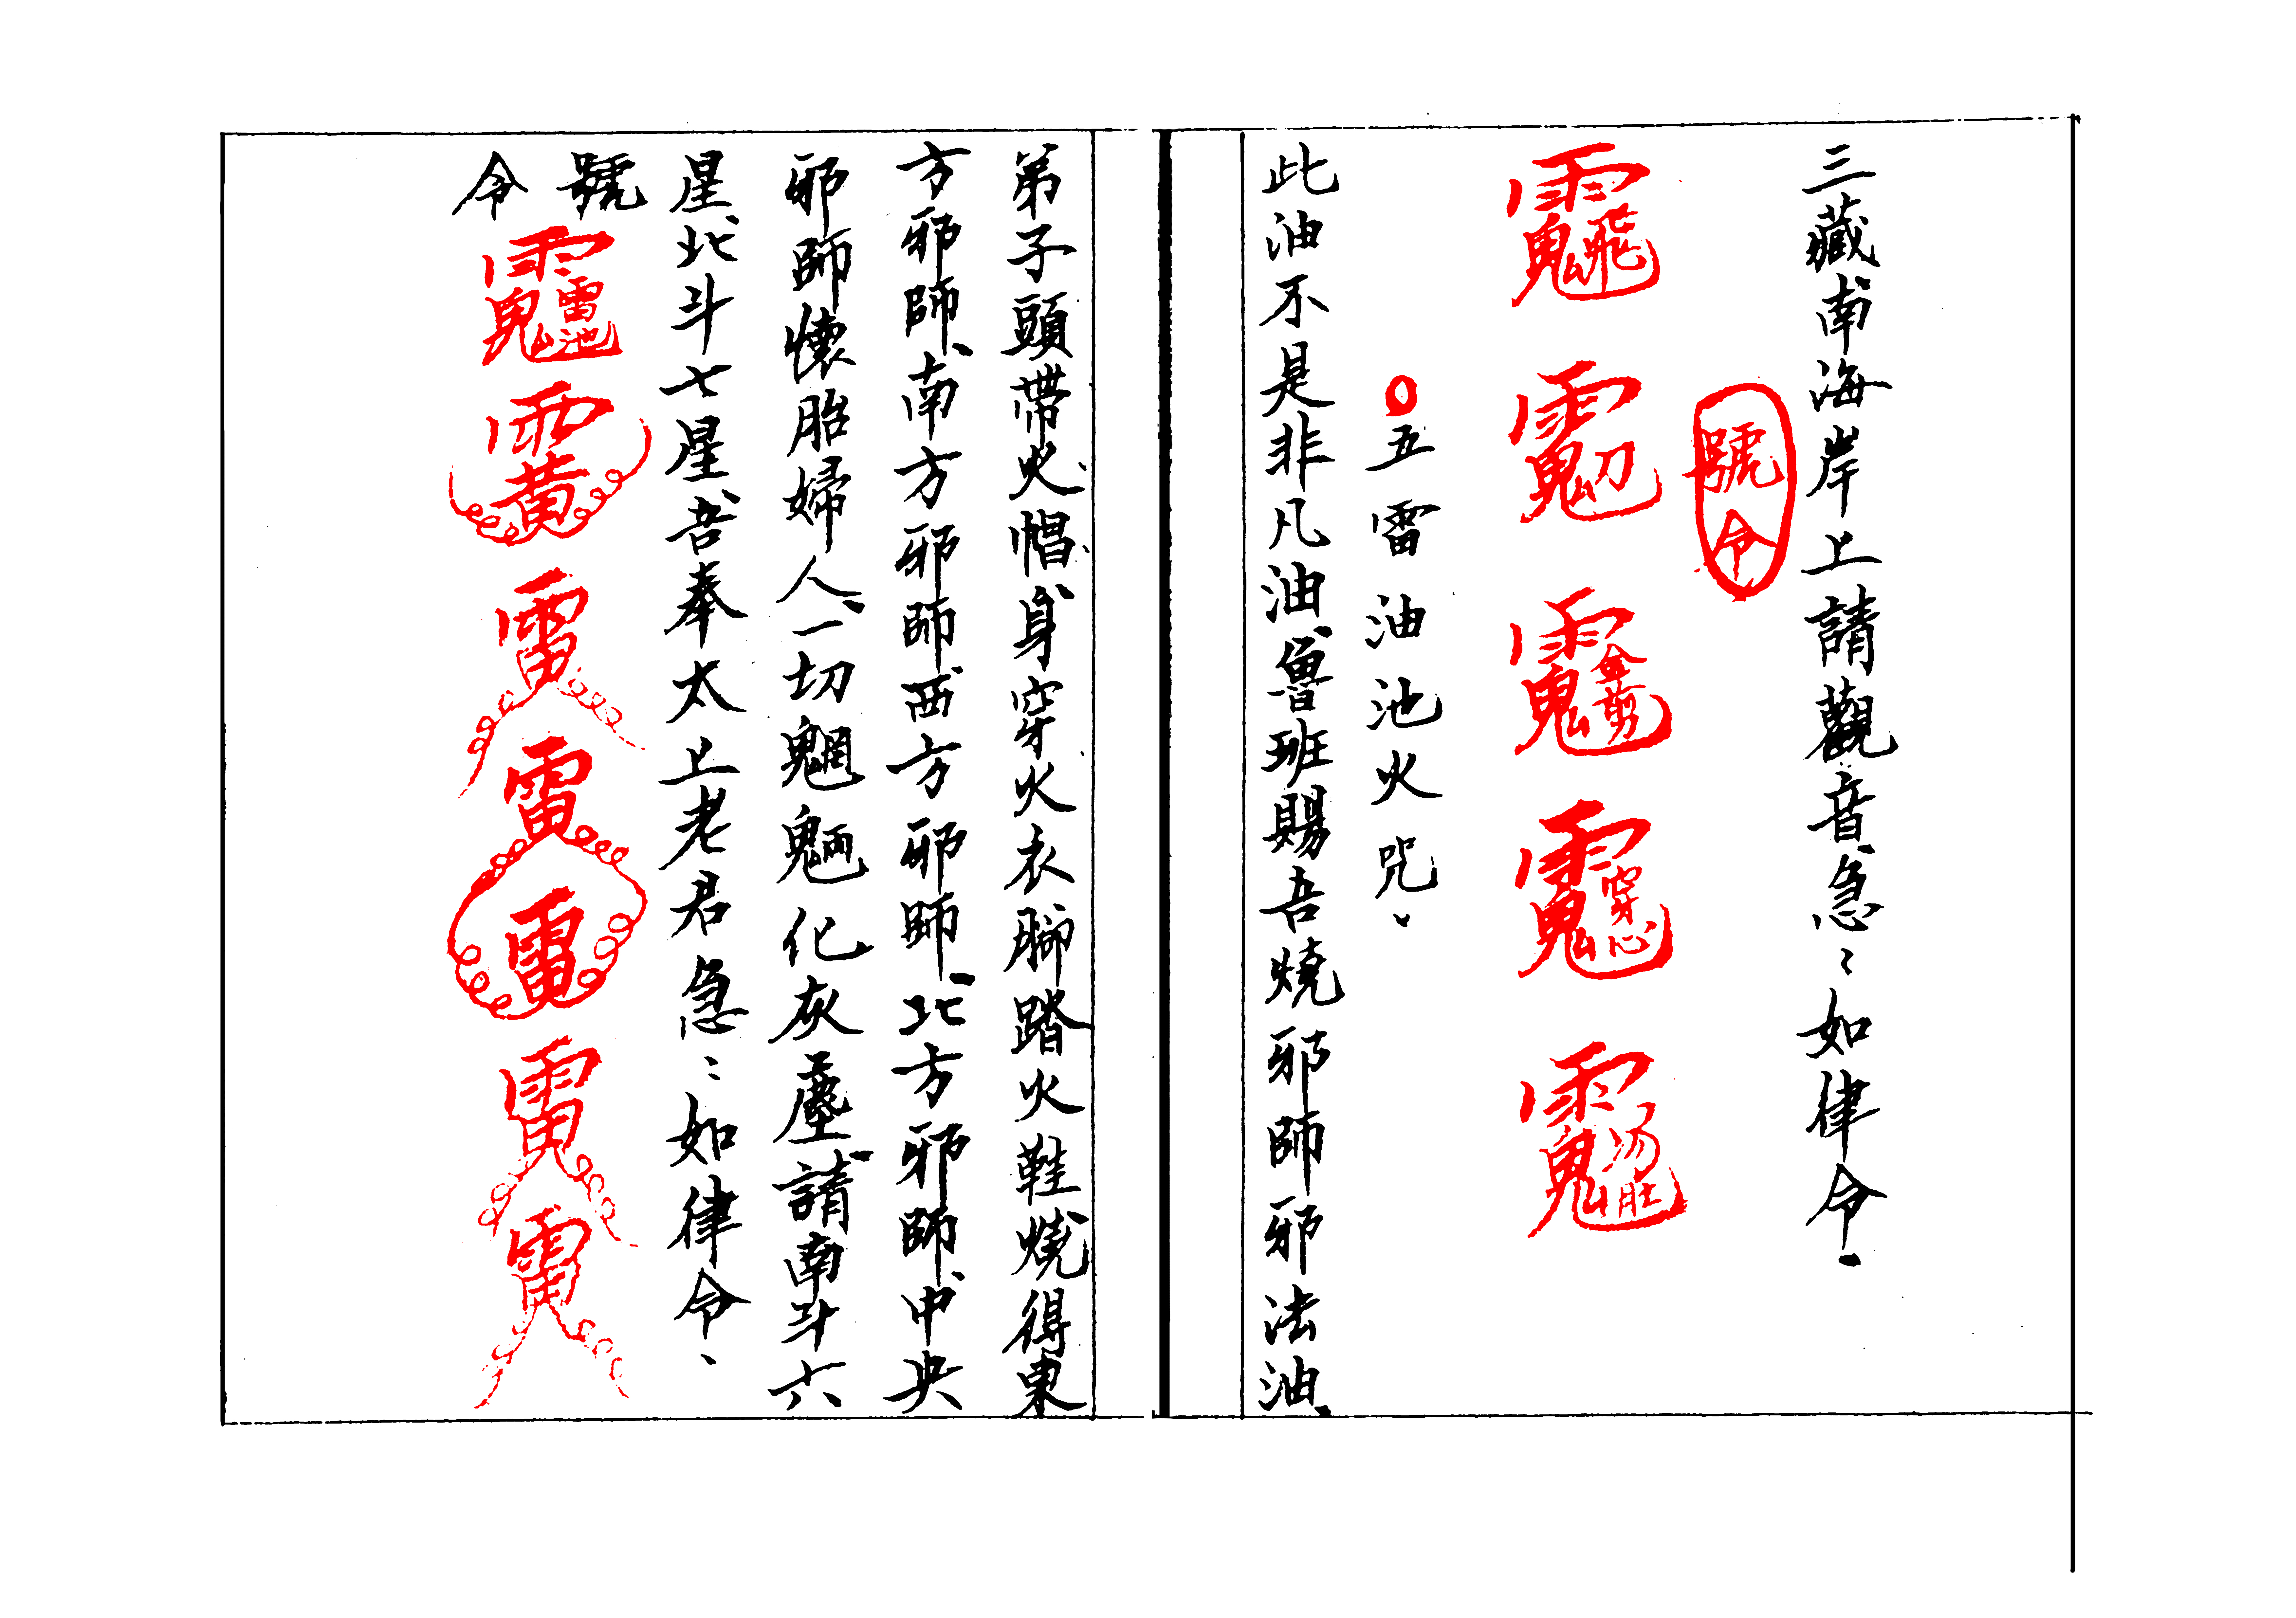 三藏南海岸上請觀音急〻如律令
號令
○五雷油池火咒
此油不是非凡油魯班賜吾燒邪師邪法油
弟子頭帶火帽身穿火衣腳踏火鞋燒得東
方邪師南方邪師西方邪師北方邪師中央
邪師懷胎婦人一切魍魎化灰塵請南斗六
星北斗七星吾奉太上老君急〻如律令
號令